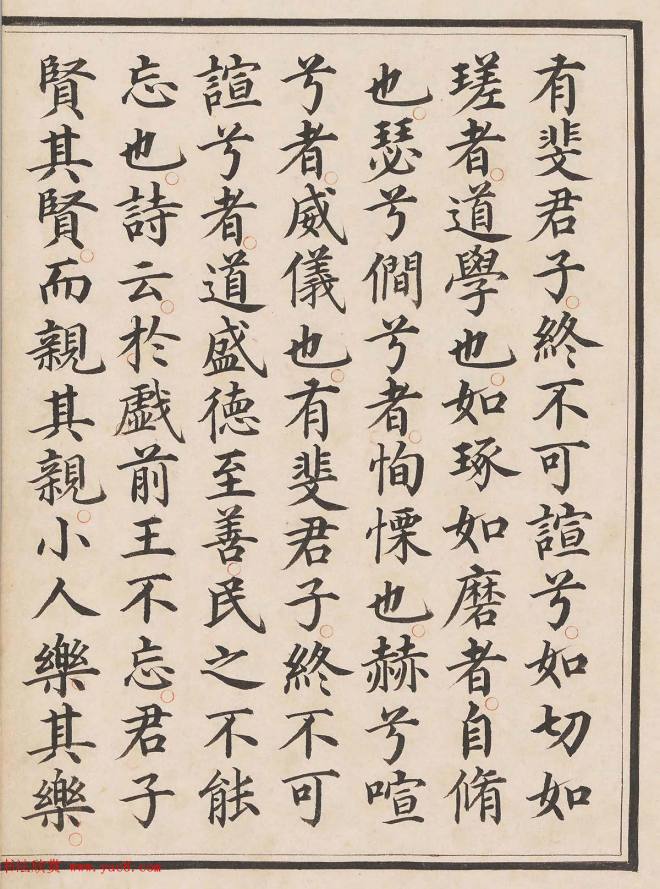 有斐君子終不可諠兮如切如
瑳者道學也如琢如磨者自脩
也瑟兮僩兮者恂慄也赫兮喧
兮者威儀也有斐君子終不可
諠兮者道盛德至善民之不能
忘也詩云於戲前王不忘君子
賢其賢而親其親小人樂其樂
书法欣赏 www.yac8.com